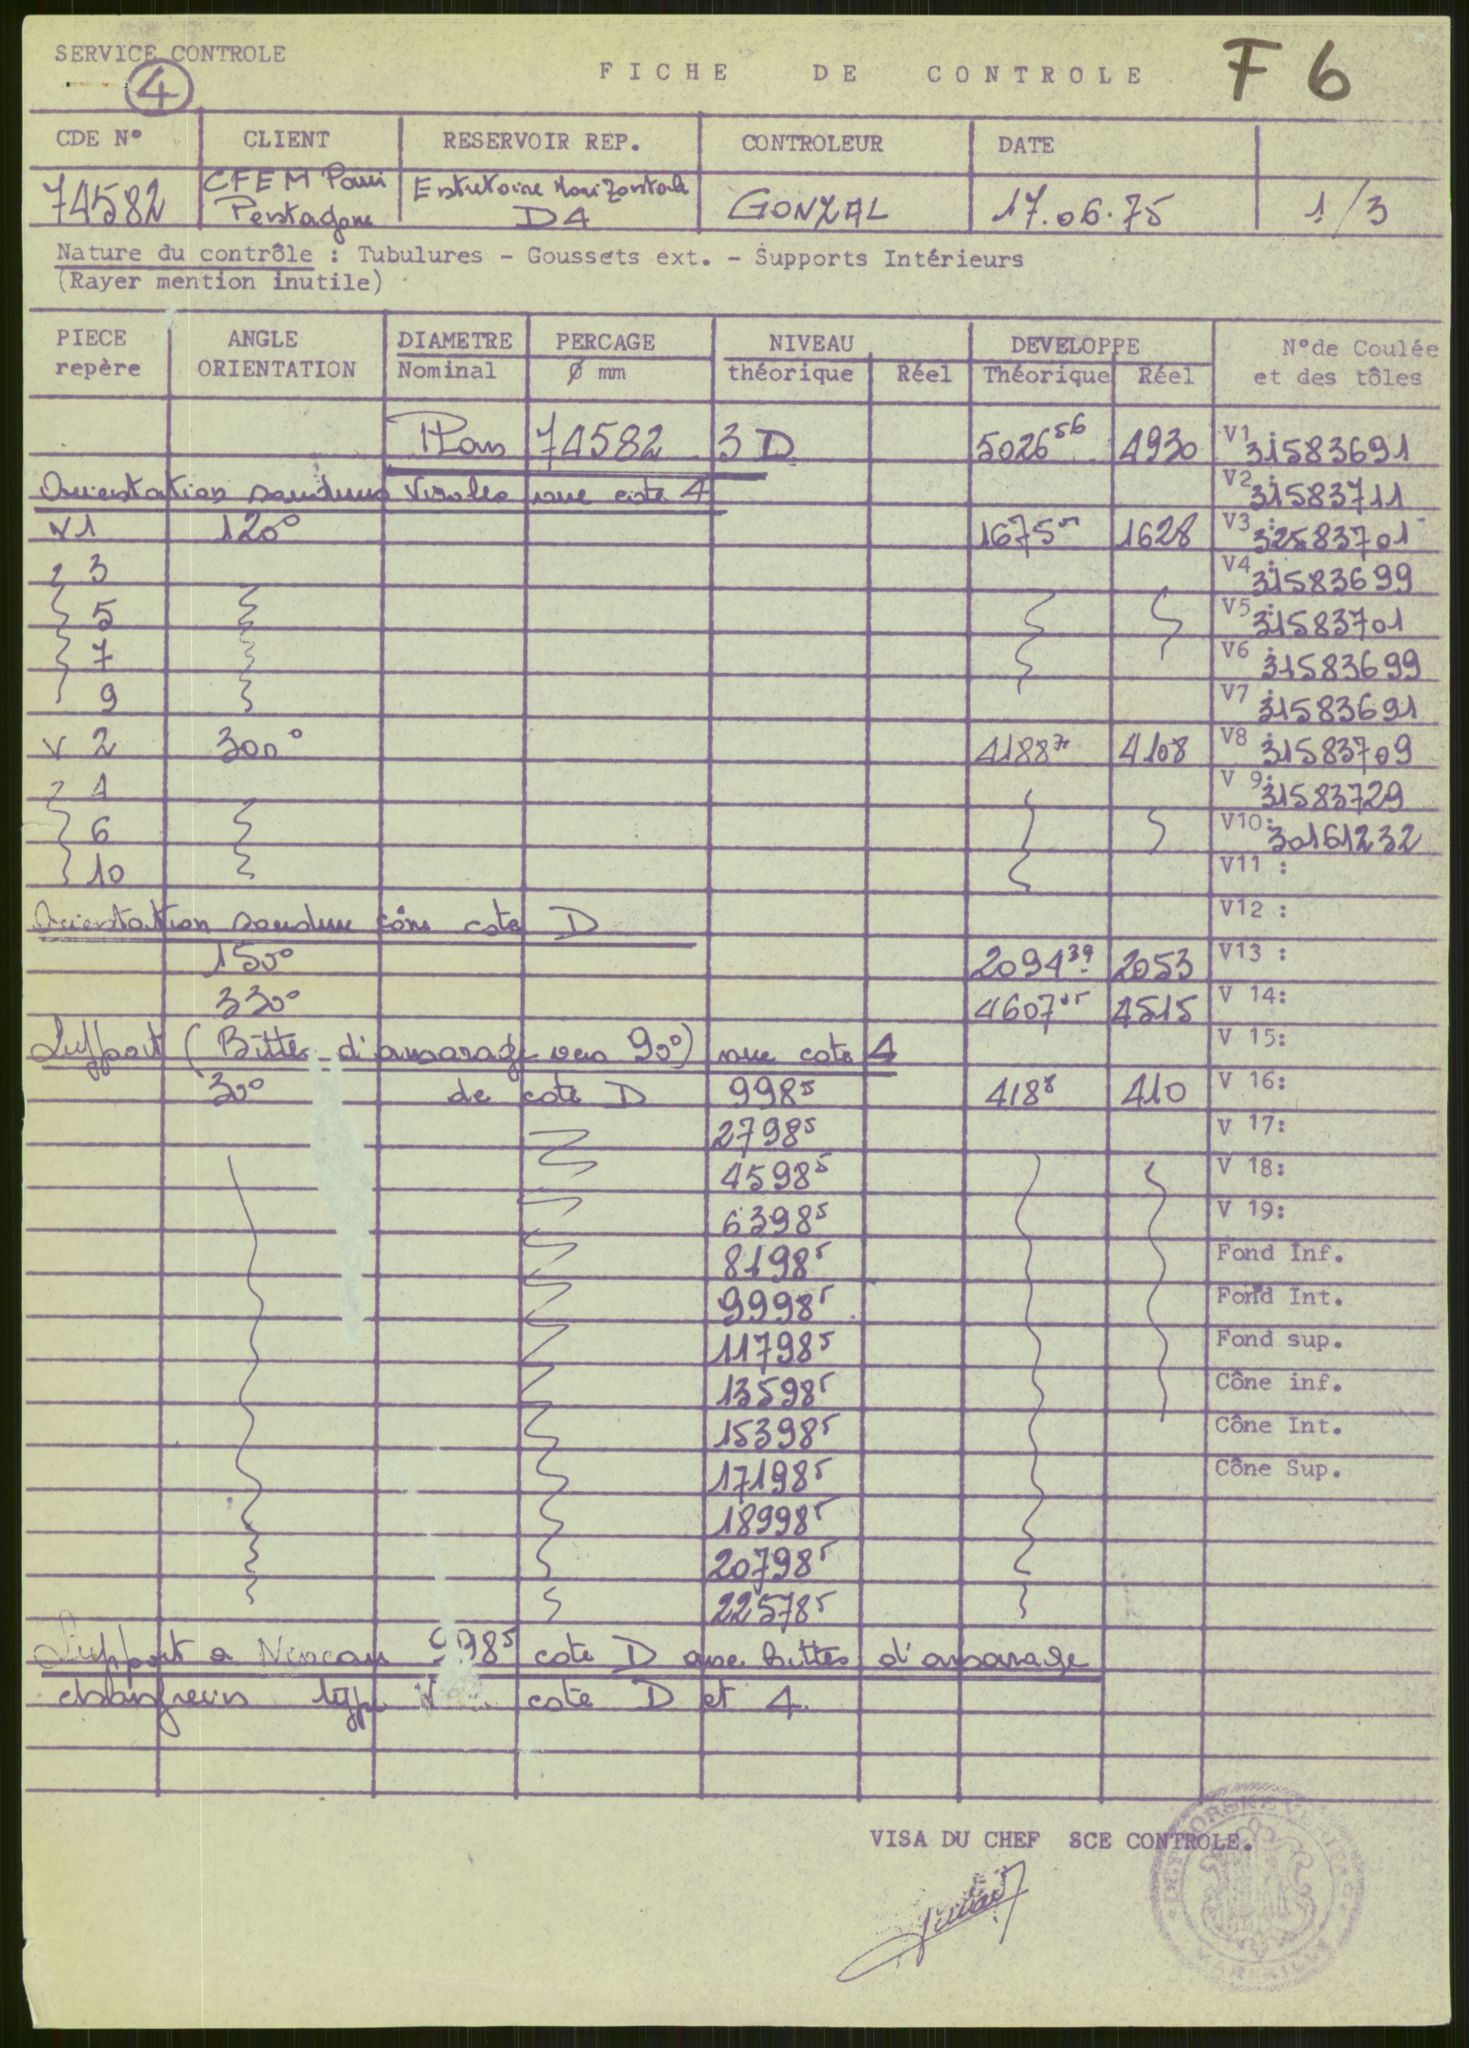 SERVICE CONTROLE
4
FICHE DE CONTROLE
F 6
CDE N° CLIENT RESERVOIR REP. CONTROLEUR DATE
74582 CFEM Paris Pentagone Entretoise Horizontale D4 GONZAL 17.06.75 1/3
Nature du contrôle : Tubulures - Goussets ext. - Supports Intérieurs
(Rayer mention inutile)
PIECE repère ANGLE ORIENTATION DIAMETRE Nominal PERCAGE Ø mm NIVEAU théorique Réel DEVELOPPE Théorique Réel N°de Coulée et des tôles
Plan 74582 3 D 5026 56 4930 V1 : 31583691
Orientation soudures Viroles vue coté 4 V2 : 31583711
V1 120° 1675 1628 V3 : 32583701
3 V4 : 31583699
5 V5 : 31583701
7 V6 : 31583699
9 V7 : 31583691
V 2 300° 4188 4108 V8 : 31583709
4 V 9: 31583729
6 V10: 30161232
10 V11 :
V12 :
Orientation soudure cône coté D
150° 2094 39 2053 V13 :
330° 4607 4515 V 14:
Support (Bittes d'amarage vers 90°) vue coté 4 V 15:
30° de coté D 998 5 418 8 410 V 16:
2798 5 V 17:
4598 5 V 18:
6398 5 V 19:
8198 5 Fond Inf.
9998 5 Fond Int.
11798 5 Fond sup.
13598 5 Cône inf.
15398 5 Cône Int.
17198 5 Cône Sup.
18998 5
20798 5
22578 5
Support a Niveau 998 5 coté D avec bittes d'amarage
chanfrein type V coté D et 4
VISA DU CHEF SCE CONTROLE.
MARSEILLE